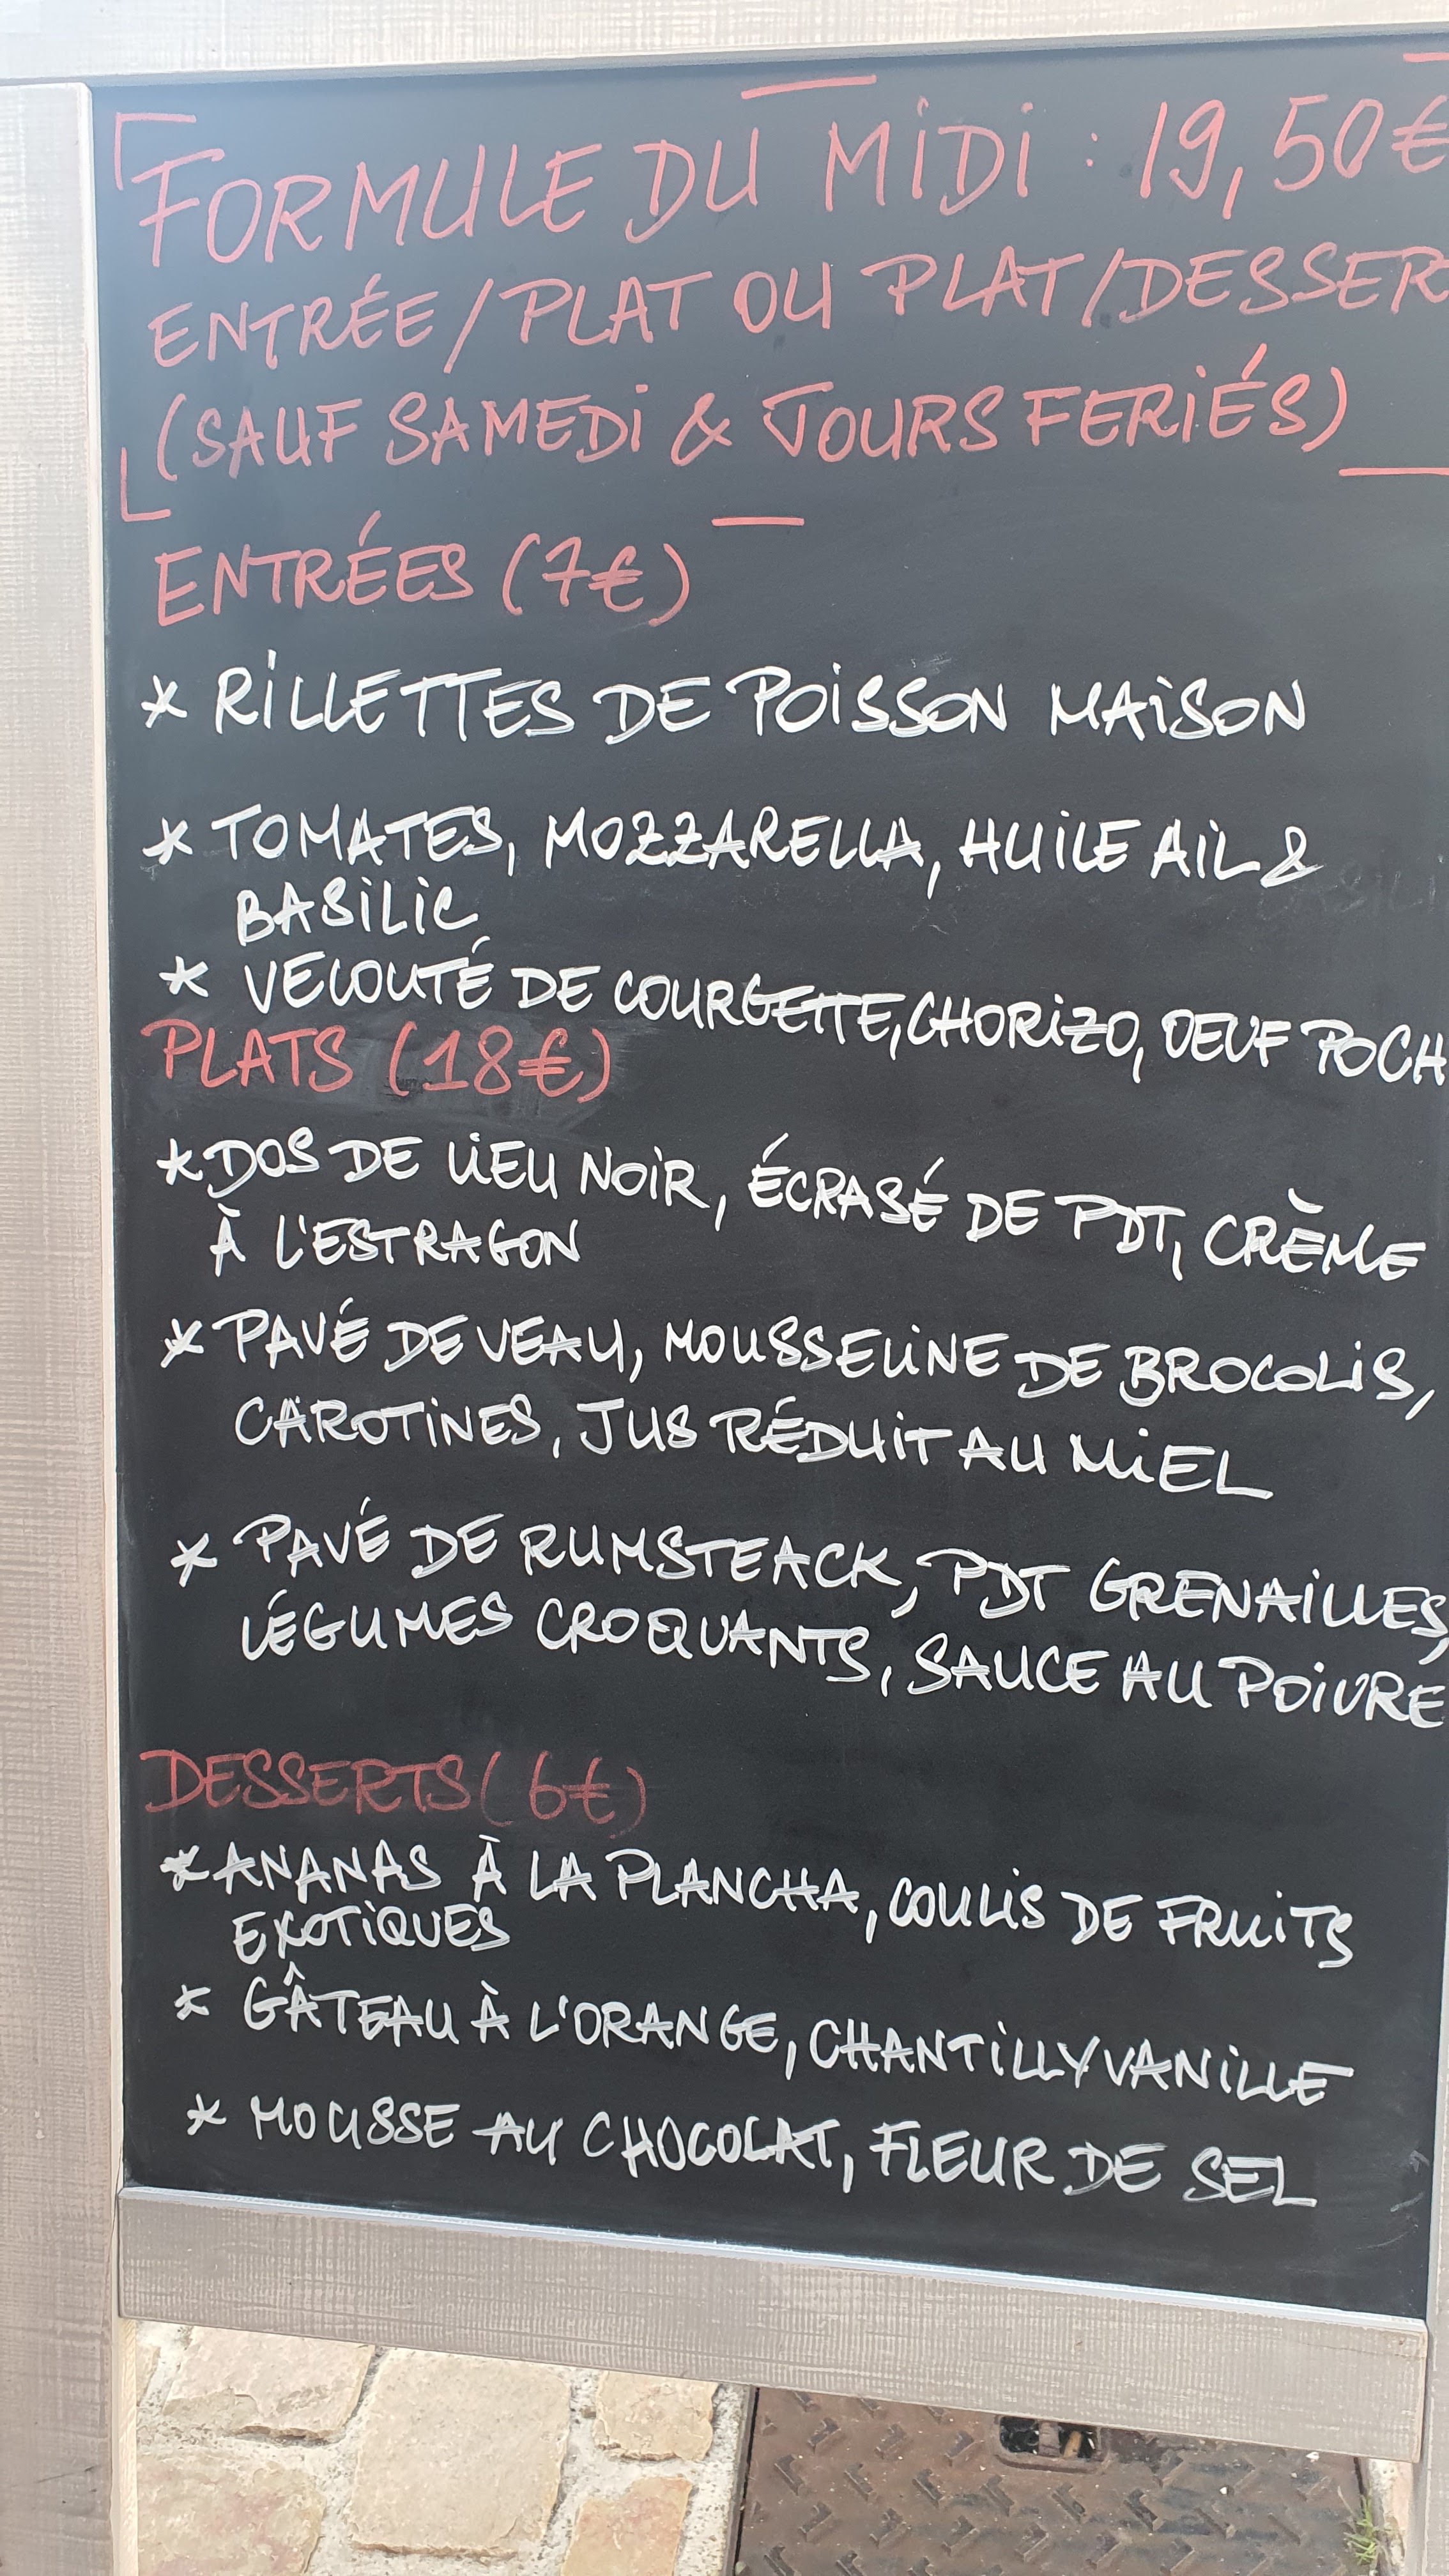 FORMULE DU MIDI : 19,50€
ENTRÉE/PLAT OU PLAT/DESSER
(SAUF SAMEDI & JOURS FERIÉS)
ENTRÉES (7€)
* RILLETTES DE POISSON MAISON
* TOMATES, MOZZARELLA, HUILE AIL &
BASILIC
* VELOUTÉ DE COURGETTE, CHORIZO, OEUF POCH
PLATS (18€)
* DOS DE LIEU NOIR, ÉCRASÉ DE PDT, CRÈME
À L'ESTRAGON
* PAVÉ DE VEAU, MOUSSELINE DE BROCOLIS,
CAROTINES, JUS RÉDUIT AU MIEL
* PAVÉ DE RUMSTEACK, PDT GRENAILLES,
LÉGUMES CROQUANTS, SAUCE AU POIVRE
DESSERTS (6€)
* ANANAS À LA PLANCHA, COULIS DE FRUITS
EXOTIQUES
* GÂTEAU À L'ORANGE, CHANTILLY VANILLE
* MOUSSE AU CHOCOLAT, FLEUR DE SEL